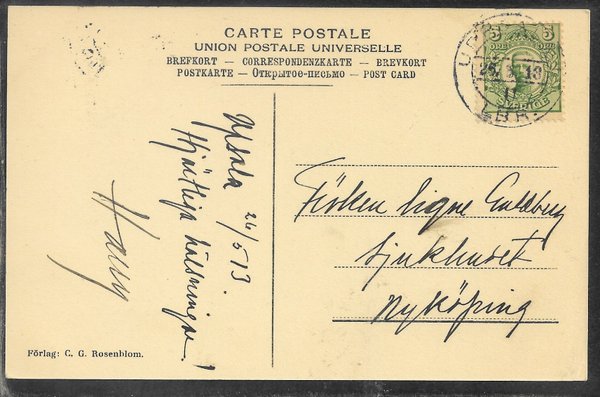 CARTE POSTALE
UNION POSTALE UNIVERSELLE
BREFKORT — CORRESPONDENZKARTE — BREVKORT
POSTKARTE — Открытое-письмо — POST CARD
5 ÖRE 5 ÖRE
SVERIGE
UPSALA
LBR.
Upsala 26/5 13.
Hjärtliga hälsningar!
Harry
Fröken Signe Guldberg
Sjukhuset
Nyköping
Förlag: C. G. Rosenblom.